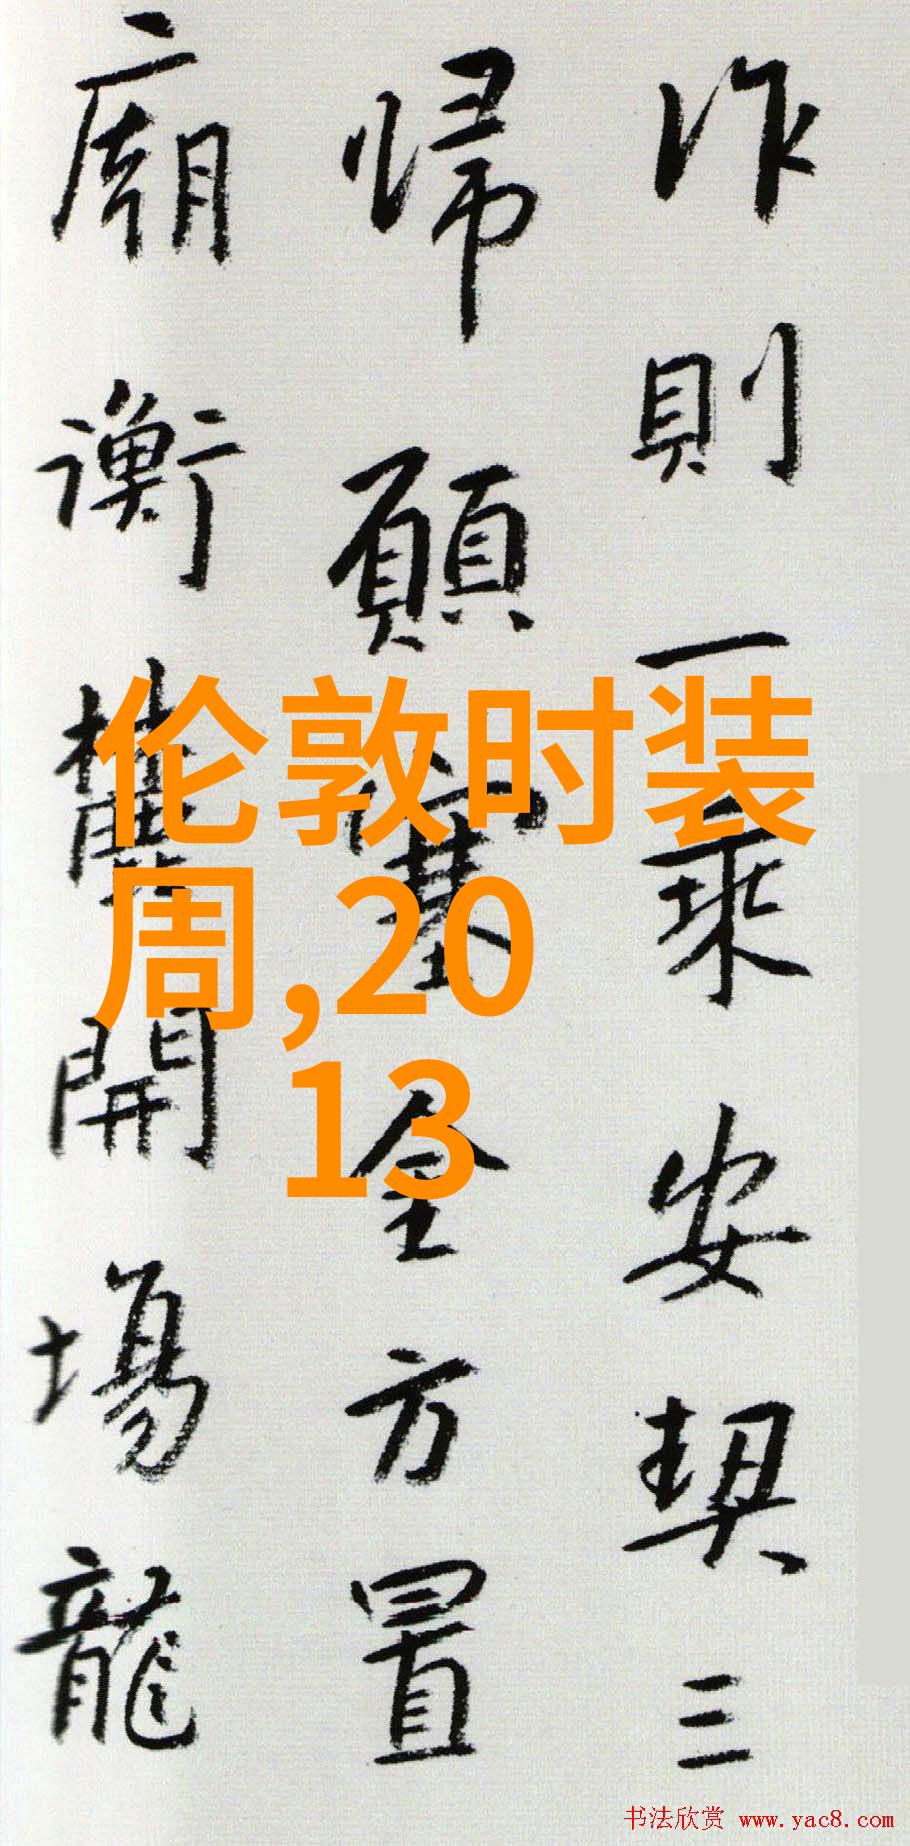 作則一乘安契三
歸願塞全方置
廟衡麓開場龍
伦敦时装
周,20
13
书法欣赏 www.yac8.com